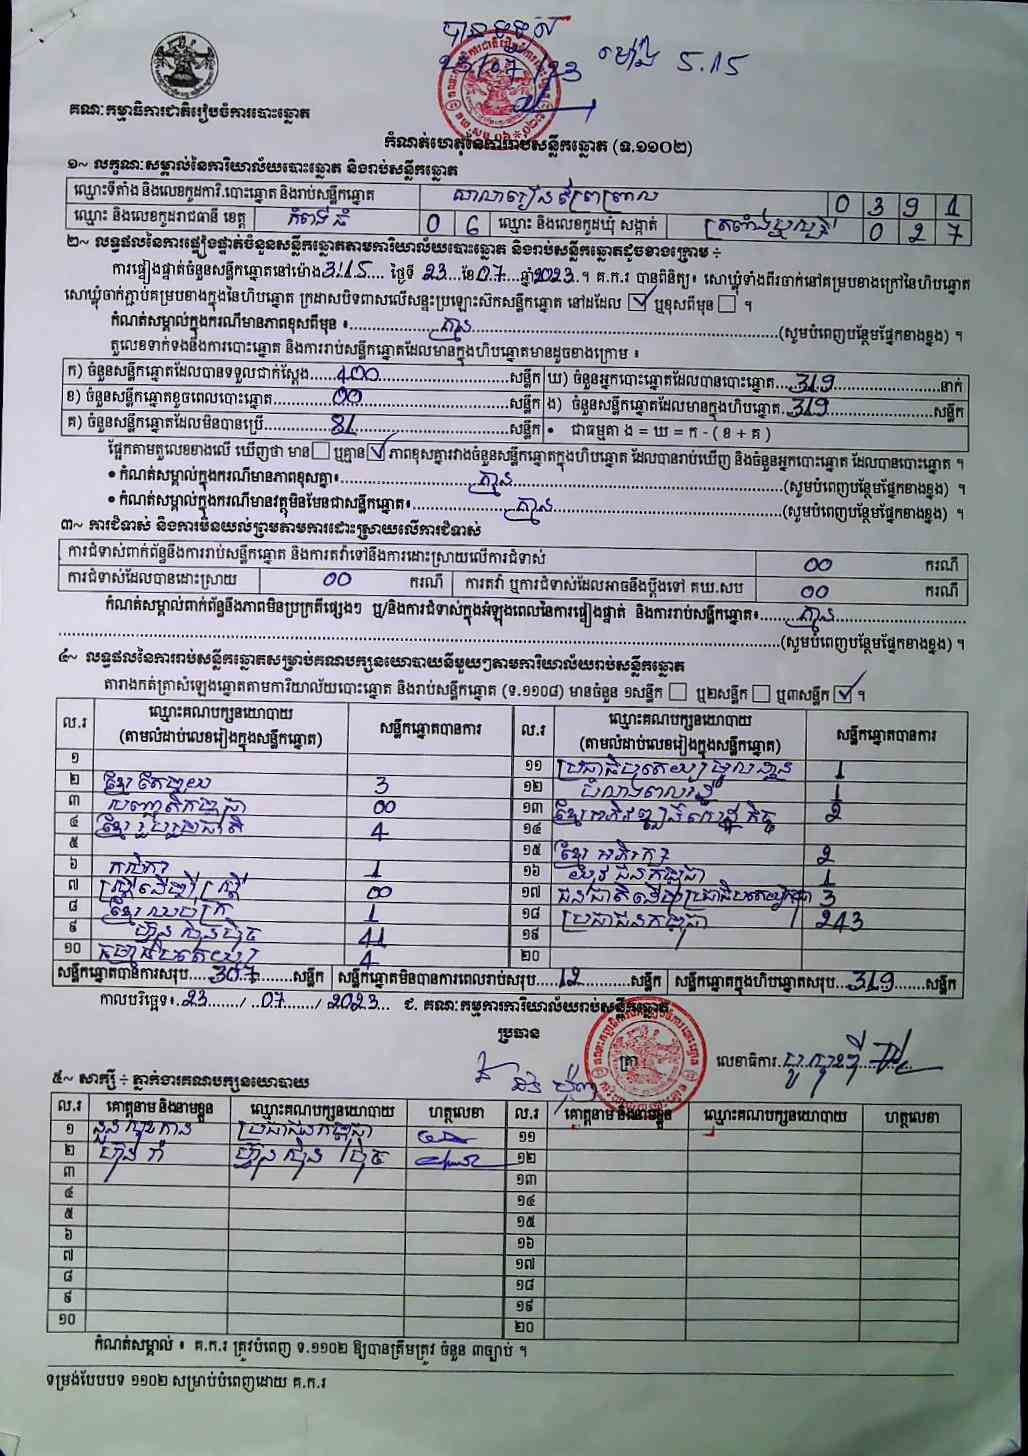 បានទទួល
23/07/23 ម៉ោង 5.15
គណៈកម្មាធិការជាតិរៀបចំការបោះឆ្នោត
កំណត់ហេតុនៃការរាប់សន្លឹកឆ្នោត (ទ.១១០២)
១~ លក្ខណៈសម្គាល់នៃការិយាល័យបោះឆ្នោត និងរាប់សន្លឹកឆ្នោត
ឈ្មោះទីតាំង និងលេខកូដការិ.បោះឆ្នោត និងរាប់សន្លឹកឆ្នោត សាលារៀន 0391
ឈ្មោះ និងលេខកូដរាជធានី ខេត្ត កំពង់ធំ 06 ឈ្មោះ និងលេខកូដឃុំ សង្កាត់ 027
២~ លទ្ធផលនៃការផ្ទៀងផ្ទាត់ចំនួនសន្លឹកឆ្នោតតាមការិយាល័យបោះឆ្នោត និងរាប់សន្លឹកឆ្នោតដូចខាងក្រោម ÷
ការផ្ទៀងផ្ទាត់ចំនួនសន្លឹកឆ្នោតនៅម៉ោង 3:15 ថ្ងៃទី 23 ខែ 07 ឆ្នាំ 2023 ។ គ.ក.រ បានពិនិត្យ៖ សោឃ្លុំទាំងពីរចាក់នៅគម្របខាងក្រៅនៃហិបឆ្នោត
សោឃ្លុំចាក់ភ្ជាប់គម្របខាងក្នុងនៃហិបឆ្នោត ក្រដាសបិទពាសលើសន្ទះប្រឡោះសិកសន្លឹកឆ្នោត នៅដដែល ☑ ឬខុសពីមុន ☐ ។
កំណត់សម្គាល់ក្នុងករណីមានភាពខុសពីមុន ៖ គ្មាន (សូមបំពេញបន្ថែមផ្នែកខាងខ្នង) ។
តួលេខទាក់ទងនឹងការបោះឆ្នោត និងការរាប់សន្លឹកឆ្នោតដែលមានក្នុងហិបឆ្នោតមានដូចខាងក្រោម ៖
ក) ចំនួនសន្លឹកឆ្នោតដែលបានទទួលជាក់ស្ដែង 400 សន្លឹក ឃ) ចំនួនអ្នកបោះឆ្នោតដែលបានបោះឆ្នោត 319 នាក់
ខ) ចំនួនសន្លឹកឆ្នោតខូចពេលបោះឆ្នោត 00 សន្លឹក ង) ចំនួនសន្លឹកឆ្នោតដែលមានក្នុងហិបឆ្នោត 319 សន្លឹក
គ) ចំនួនសន្លឹកឆ្នោតដែលមិនបានប្រើ 81 សន្លឹក • ជាធម្មតា ង = ឃ = ក - ( ខ + គ )
ផ្អែកតាមតួលេខខាងលើ ឃើញថា មាន ☐ ឬគ្មាន ☑ ភាពខុសគ្នារវាងចំនួនសន្លឹកឆ្នោតក្នុងហិបឆ្នោត ដែលបានរាប់ឃើញ និងចំនួនអ្នកបោះឆ្នោត ដែលបានបោះឆ្នោត ។
• កំណត់សម្គាល់ក្នុងករណីមានភាពខុសគ្នា៖ គ្មាន (សូមបំពេញបន្ថែមផ្នែកខាងខ្នង) ។
• កំណត់សម្គាល់ក្នុងករណីមានវត្ថុមិនមែនជាសន្លឹកឆ្នោត៖ គ្មាន (សូមបំពេញបន្ថែមផ្នែកខាងខ្នង) ។
៣~ ការជំទាស់ និងការមិនយល់ព្រមតាមការដោះស្រាយលើការជំទាស់
ការជំទាស់ពាក់ព័ន្ធនឹងការរាប់សន្លឹកឆ្នោត និងការតវ៉ាទៅនឹងការដោះស្រាយលើការជំទាស់ 00 ករណី
ការជំទាស់ដែលបានដោះស្រាយ 00 ករណី ការតវ៉ា ឬការជំទាស់ដែលអាចនឹងប្ដឹងទៅ គឃ.សប 00 ករណី
កំណត់សម្គាល់ពាក់ព័ន្ធនឹងភាពមិនប្រក្រតីផ្សេងៗ ឬ/និងការជំទាស់ក្នុងអំឡុងពេលនៃការផ្ទៀងផ្ទាត់ និងការរាប់សន្លឹកឆ្នោត៖ គ្មាន
(សូមបំពេញបន្ថែមផ្នែកខាងខ្នង) ។
៤~ លទ្ធផលនៃការរាប់សន្លឹកឆ្នោតសម្រាប់គណបក្សនយោបាយនីមួយៗតាមការិយាល័យរាប់សន្លឹកឆ្នោត
តារាងកត់ត្រាសំឡេងឆ្នោតតាមការិយាល័យបោះឆ្នោត និងរាប់សន្លឹកឆ្នោត (ទ.១១០៨) មានចំនួន ១សន្លឹក ☐ ឬ២សន្លឹក ☐ ឬ៣សន្លឹក ☑ ។
ល.រ ឈ្មោះគណបក្សនយោបាយ (តាមលំដាប់លេខរៀងក្នុងសន្លឹកឆ្នោត) សន្លឹកឆ្នោតបានការ ល.រ ឈ្មោះគណបក្សនយោបាយ (តាមលំដាប់លេខរៀងក្នុងសន្លឹកឆ្នោត) សន្លឹកឆ្នោតបានការ
១ ១១ ប្រជាធិបតេយ្យមូលដ្ឋាន 1
២ ខ្មែរតែមួយ 3 ១២ កម្លាំងពលរដ្ឋ 1
៣ 00 ១៣ ខ្មែរអភិវឌ្ឍន៍សេដ្ឋកិច្ច 2
៤ ខ្មែររួបរួមជាតិ 4 ១៤
៥ ១៥ ខ្មែរអភិរក្ស 2
៦ កសិករ 1 ១៦ យុវជនកម្ពុជា 1
៧ ស្ត្រីដើម្បីស្ត្រី 00 ១៧ ជនជាតិដើមប្រជាធិបតេយ្យកម្ពុជា 3
៨ ខ្មែរឈប់ក្រ 1 ១៨ ប្រជាជនកម្ពុជា 243
៩ ហ្វ៊ុនស៊ិនប៉ិច 41 ១៩
១០ ធម្មាធិបតេយ្យ 4 ២០
សន្លឹកឆ្នោតបានការសរុប 307 សន្លឹក សន្លឹកឆ្នោតមិនបានការពេលរាប់សរុប 12 សន្លឹក សន្លឹកឆ្នោតក្នុងហិបឆ្នោតសរុប 319 សន្លឹក
កាលបរិច្ឆេទ៖ 23 / 07 / 2023 ជ. គណៈកម្មការការិយាល័យរាប់សន្លឹកឆ្នោត
ប្រធាន
ត្រា លេខាធិការ
៥~ សាក្សី ÷ ភ្នាក់ងារគណបក្សនយោបាយ
ល.រ គោត្តនាម និងនាមខ្លួន ឈ្មោះគណបក្សនយោបាយ ហត្ថលេខា ល.រ គោត្តនាម និងនាមខ្លួន ឈ្មោះគណបក្សនយោបាយ ហត្ថលេខា
១ ប្រជាជនកម្ពុជា ១១
២ ហ្វ៊ុនស៊ិនប៉ិច ១២
៣ ១៣
៤ ១៤
៥ ១៥
៦ ១៦
៧ ១៧
៨ ១៨
៩ ១៩
១០ ២០
កំណត់សម្គាល់ ៖ គ.ក.រ ត្រូវបំពេញ ទ.១១០២ ឱ្យបានត្រឹមត្រូវ ចំនួន ៣ច្បាប់ ។
ទម្រង់បែបបទ ១១០២ សម្រាប់បំពេញដោយ គ.ក.រ